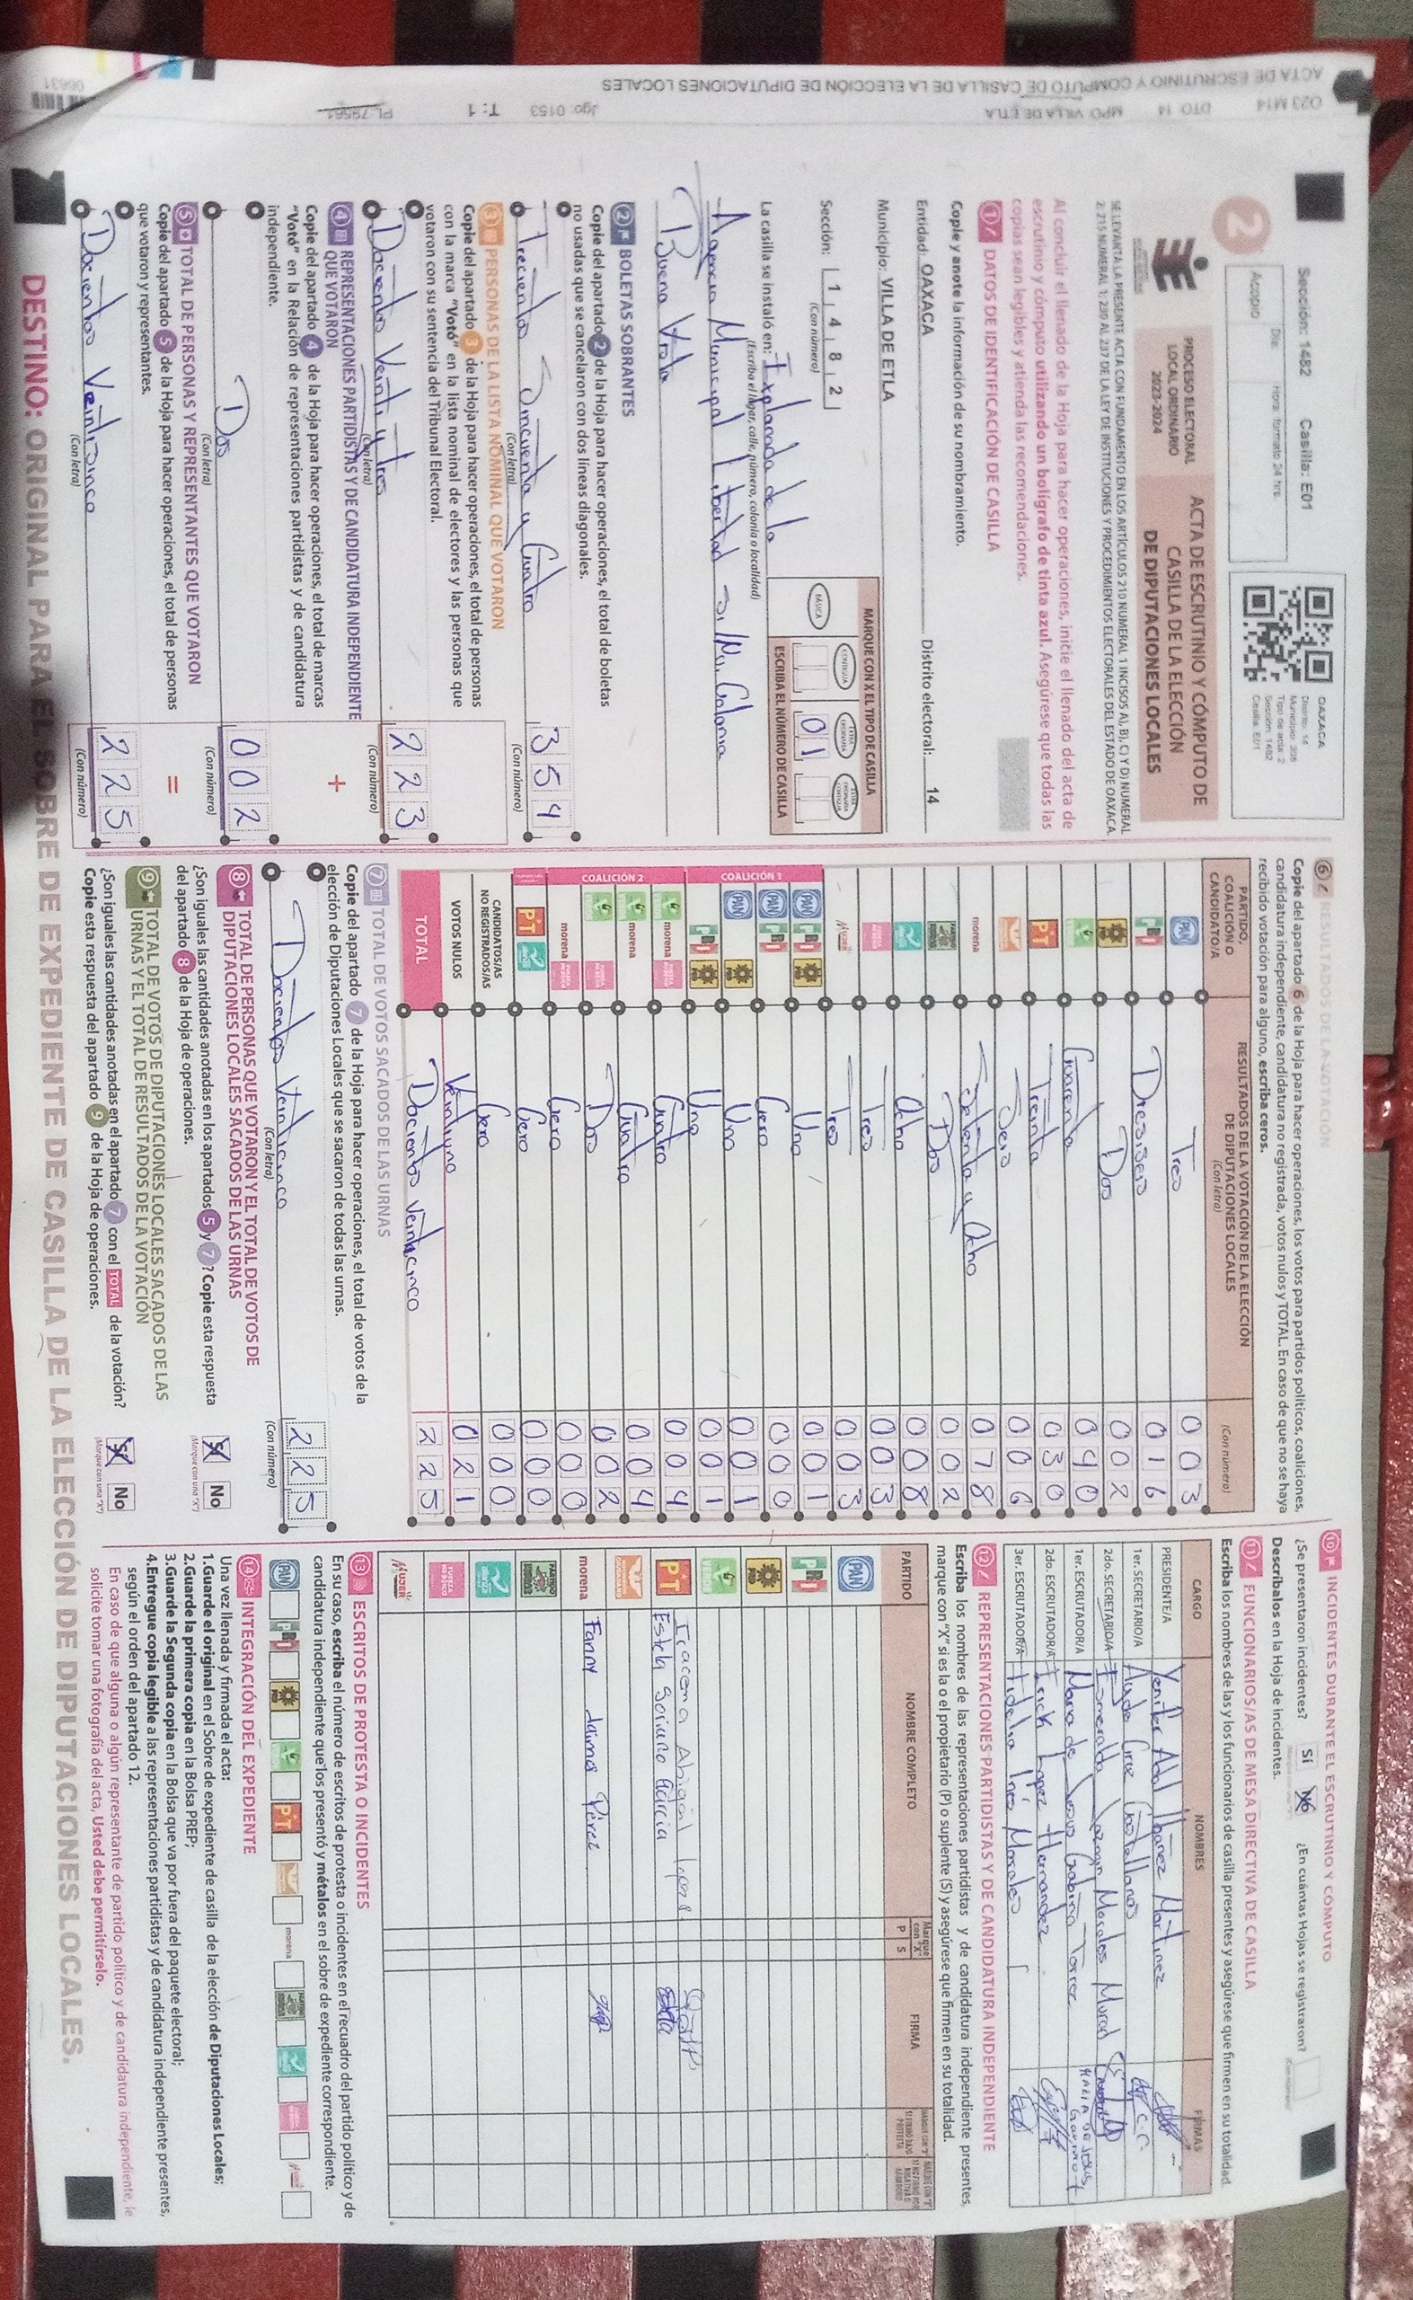 ACTA DE ESCRUTINIO Y CÓMPUTO DE CASILLA DE LA ELECCIÓN DE DIPUTACIONES LOCALES
023 M14 DTO 14 MPO VILLA DE ETLA Jgo: 0153 T: 1
06631
Sección: 1482 Casilla: E01
2
Acopio
Día: Hora: formato 24 hrs.
OAXACA
Distrito: 14
Tipo de acta: 2
Sección: 1482
Casilla: E01
PROCESO ELECTORAL
LOCAL ORDINARIO
2023-2024
ACTA DE ESCRUTINIO Y CÓMPUTO DE
CASILLA DE LA ELECCIÓN
DE DIPUTACIONES LOCALES
SE LEVANTA LA PRESENTE ACTA CON FUNDAMENTO EN LOS ARTÍCULOS 210 NUMERAL 1 INCISOS A), B), C) Y D) NUMERAL
2; 215 NUMERAL 1; 230 AL 237 DE LA LEY DE INSTITUCIONES Y PROCEDIMIENTOS ELECTORALES DEL ESTADO DE OAXACA.
Al concluir el llenado de la Hoja para hacer operaciones, inicie el llenado del acta de
escrutinio y cómputo utilizando un bolígrafo de tinta azul. Asegúrese que todas las
copias sean legibles y atienda las recomendaciones.
1 DATOS DE IDENTIFICACIÓN DE CASILLA
Copie y anote la información de su nombramiento.
Entidad: OAXACA Distrito electoral: 14
Municipio: VILLA DE ETLA
Sección: 1 4 8 2
(Con número)
MARQUE CON X EL TIPO DE CASILLA
BÁSICA CONTIGUA
01
ESCRIBA EL NÚMERO DE CASILLA
La casilla se instaló en: Explanada de la
(Escriba el lugar, calle, número, colonia o localidad)
Agencia Municipal Libertad S/N. Colonia
Buena Vista
2 BOLETAS SOBRANTES
Copie del apartado 2 de la Hoja para hacer operaciones, el total de boletas
no usadas que se cancelaron con dos líneas diagonales.
Trecientos Cincuenta y Cuatro 354
(Con letra) (Con número)
3 PERSONAS DE LA LISTA NOMINAL QUE VOTARON
Copie del apartado 3 de la Hoja para hacer operaciones, el total de personas
con la marca "Votó" en la lista nominal de electores y las personas que
votaron con su sentencia del Tribunal Electoral.
Docientos Veintitres 223
(Con letra) (Con número)
4 REPRESENTACIONES PARTIDISTAS Y DE CANDIDATURA INDEPENDIENTE
QUE VOTARON
Copie del apartado 4 de la Hoja para hacer operaciones, el total de marcas
"Votó" en la Relación de representaciones partidistas y de candidatura
independiente.
+
Dos 002
(Con letra) (Con número)
5 TOTAL DE PERSONAS Y REPRESENTANTES QUE VOTARON
Copie del apartado 5 de la Hoja para hacer operaciones, el total de personas
que votaron y representantes.
=
Docientos Veinticinco 225
(Con letra) (Con número)
6 RESULTADOS DE LA VOTACIÓN
Copie del apartado 6 de la Hoja para hacer operaciones, los votos para partidos políticos, coaliciones,
candidatura independiente, candidatura no registrada, votos nulos y TOTAL. En caso de que no se haya
recibido votación para alguno, escriba ceros.
PARTIDO, COALICIÓN O CANDIDATO/A
RESULTADOS DE LA VOTACIÓN DE LA ELECCIÓN DE DIPUTACIONES LOCALES
(Con letra) (Con número)
PAN Tres 003
PRI Dieciseis 016
PRD Dos 002
VERDE Cuarenta 040
PT Treinta 030
Seis 006
morena Setenta y Ocho 078
Dos 002
Ocho 008
Tres 003
MUJER Tres 003
COALICIÓN 1
PAN PRI PRD Uno 001
PAN PRI Cero 000
PAN PRD Uno 001
PRI PRD Uno 001
COALICIÓN 2
VERDE morena Cuatro 004
VERDE morena Cuatro 004
VERDE Dos 002
morena Cero 000
PT Cero 000
CANDIDATOS/AS NO REGISTRADOS/AS Cero 000
VOTOS NULOS Veintiuno 021
TOTAL Docientos Veinticinco 225
7 TOTAL DE VOTOS SACADOS DE LAS URNAS
Copie del apartado 7 de la Hoja para hacer operaciones, el total de votos de la
elección de Diputaciones Locales que se sacaron de todas las urnas.
Docientos Veinticinco 225
(Con letra) (Con número)
8 TOTAL DE PERSONAS QUE VOTARON Y EL TOTAL DE VOTOS DE
DIPUTACIONES LOCALES SACADOS DE LAS URNAS
¿Son iguales las cantidades anotadas en los apartados 5 y 7? Copie esta respuesta
del apartado 8 de la Hoja de operaciones.
Sí No
(Marque con una "X")
9 TOTAL DE VOTOS DE DIPUTACIONES LOCALES SACADOS DE LAS
URNAS Y EL TOTAL DE RESULTADOS DE LA VOTACIÓN
¿Son iguales las cantidades anotadas en el apartado 7 con el TOTAL de la votación?
Copie esta respuesta del apartado 9 de la Hoja de operaciones.
Sí No
(Marque con una "X")
10 INCIDENTES DURANTE EL ESCRUTINIO Y CÓMPUTO
¿Se presentaron incidentes? Sí No ¿En cuántas Hojas se registraron?
Descríbalos en la Hoja de incidentes.
11 FUNCIONARIOS/AS DE MESA DIRECTIVA DE CASILLA
Escriba los nombres de las y los funcionarios de casilla presentes y asegúrese que firmen en su totalidad.
CARGO NOMBRES FIRMAS
PRESIDENTE/A Yenifer Martinez
1er. SECRETARIO/A Cruz
2do. SECRETARIO/A Esmeralda Morales
1er. ESCRUTADOR/A Maria de Jesus Torres
2do. ESCRUTADOR/A Erick López Hernandez
3er. ESCRUTADOR/A Fidelia Inés Morales
12 REPRESENTACIONES PARTIDISTAS Y DE CANDIDATURA INDEPENDIENTE
Escriba los nombres de las representaciones partidistas y de candidatura independiente presentes,
marque con "X" si es la o el propietario (P) o suplente (S) y asegúrese que firmen en su totalidad.
PARTIDO NOMBRE COMPLETO Marque con "X" P S FIRMA
PAN
PRI
PRD
VERDE
PT Abigail Lopez
Estela Garcia
morena Fanny Jaimes Pérez
MUJER
13 ESCRITOS DE PROTESTA O INCIDENTES
En su caso, escriba el número de escritos de protesta o incidentes en el recuadro del partido político y de
candidatura independiente que los presentó y métalos en el sobre de expediente correspondiente.
PAN PRI PRD VERDE PT morena
14 INTEGRACIÓN DEL EXPEDIENTE
Una vez llenada y firmada el acta:
1.Guarde el original en el Sobre de expediente de casilla de la elección de Diputaciones Locales;
2.Guarde la primera copia en la Bolsa PREP;
3.Guarde la Segunda copia en la Bolsa que va por fuera del paquete electoral;
4.Entregue copia legible a las representaciones partidistas y de candidatura independiente presentes,
según el orden del apartado 12.
En caso de que alguna o algún representante de partido político y de candidatura independiente, le
solicite tomar una fotografía del acta, Usted debe permitírselo.
DESTINO: ORIGINAL PARA EL SOBRE DE EXPEDIENTE DE CASILLA DE LA ELECCIÓN DE DIPUTACIONES LOCALES.